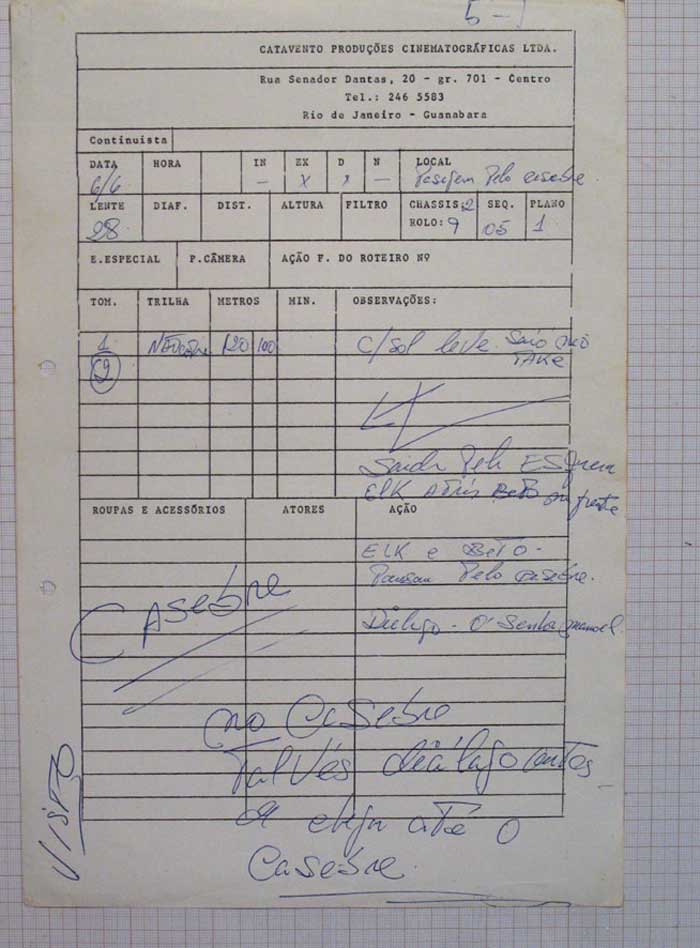 5-1
CATAVENTO PRODUÇÕES CINEMATOGRÁFICAS LTDA.
Rua Senador Dantas, 20 - gr. 701 - Centro
Tel.: 246 5583
Rio de Janeiro - Guanabara
Continuista
DATA HORA IN EX D N LOCAL
6/6 — X — pelo casebre
LENTE DIAF. DIST. ALTURA FILTRO CHASSIS: 2 SEQ. PLANO
28 ROLO: 9 05 1
E.ESPECIAL P.CÂMERA AÇÃO F. DO ROTEIRO Nº
TOM. TRILHA METROS MIN. OBSERVAÇÕES:
1 120 100 C/sol leve. Saiö
2 TAKE
Saida Pela ESquera
ELK Atrás BETO em frente
ROUPAS E ACESSÓRIOS ATORES AÇÃO
ELK e BETO -
Passam Pelo casebre.
CASEBRE
Diálogo - O Senhor manoel
no CASEBRE
TALVÉS diálogo antes
até O
CASEBRE.
VISTO